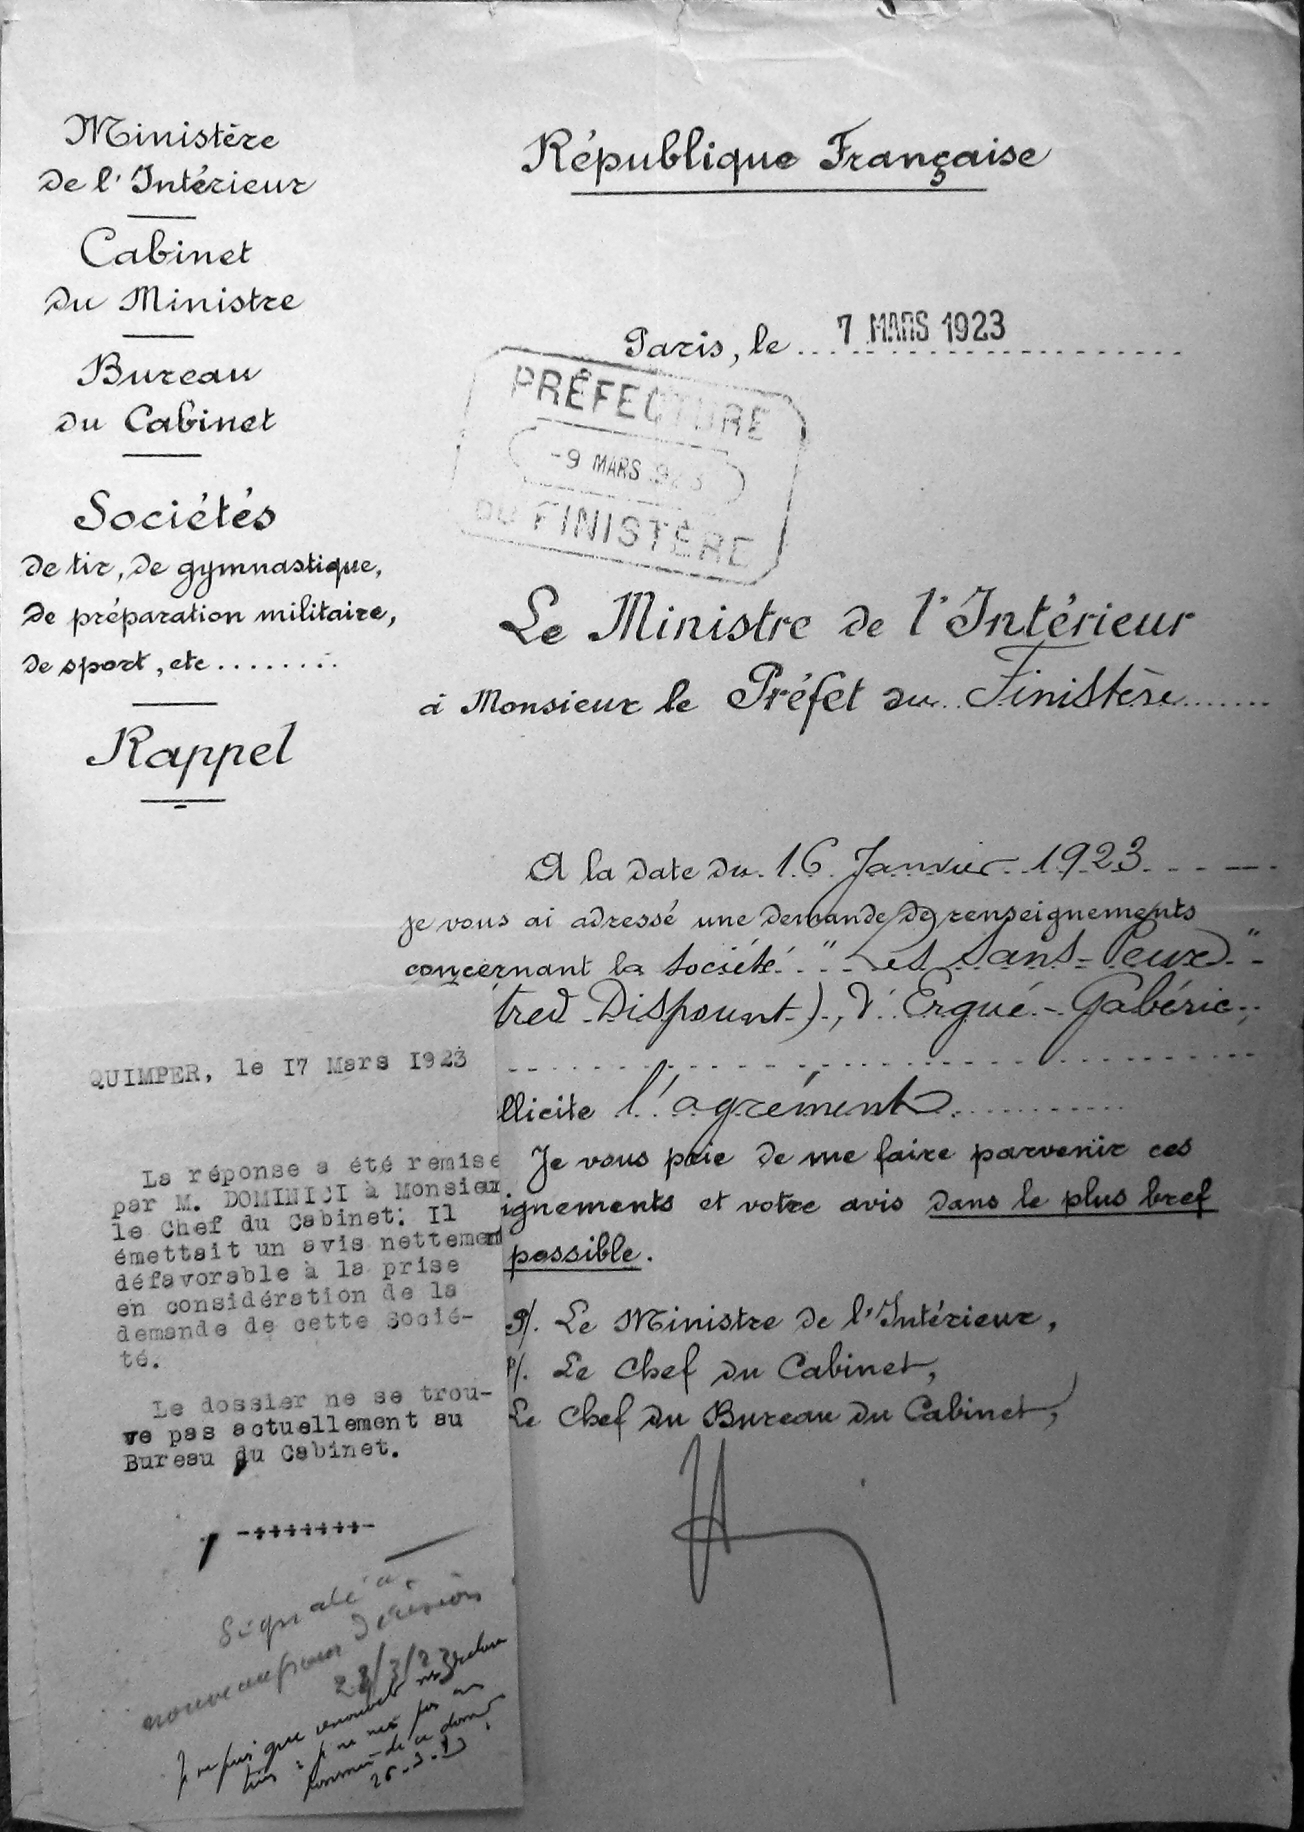 Ministère
de l'Intérieur
Cabinet
du Ministre
Bureau
du Cabinet
Sociétés
de tir, de gymnastique,
de préparation militaire,
de sport, etc ........
Rappel
République Française
Paris, le 7 MARS 1923
PRÉFECTURE
-9 MARS 1923
DU FINISTÈRE
Le Ministre de l'Intérieur
à Monsieur le Préfet du Finistère
A la date du 16 Janvier 1923
je vous ai adressé une demande de renseignements
concernant la société "Les Sans-Peur"
tred Dispount), d'Ergué-Gabéric,
llicite l'agrément
Je vous prie de me faire parvenir ces
ignements et votre avis dans le plus bref
possible.
P/. Le Ministre de l'Intérieur,
P/. Le Chef du Cabinet,
Le Chef du Bureau du Cabinet,
QUIMPER, le 17 Mars 1923
La réponse a été remise
par M. DOMINICI à Monsieur
le Chef du Cabinet. Il
émettait un avis nettement
défavorable à la prise
en considération de la
demande de cette socié-
té.
Le dossier ne se trou-
ve pas actuellement au
Bureau du Cabinet.
-+++++++-
Signalé à
nouveau pour décision
23/3/23
Je ne puis que renouveler
je ne pas
de ce
26-3-23